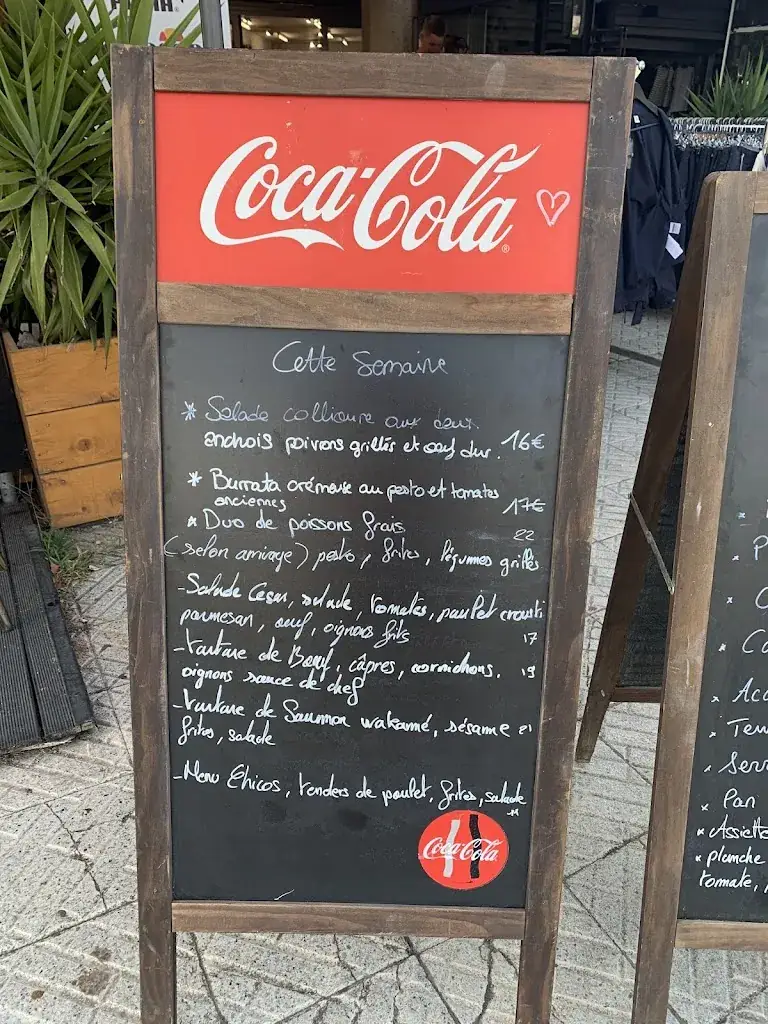 Coca-Cola
Cette Semaine
* Salade collioure aux deux
anchois poivrons grillés et oeuf dur. 16€
* Burrata crémeuse au pesto et tomates
anciennes 17€
* Duo de poissons frais 22
(selon arrivage) pesto, frites, légumes grillés
- Salade Cesar, salade, tomates, poulet crousti
parmesan, oeuf, oignons frits 17
- Tartare de Boeuf, câpres, cornichons, 19
oignons sauce de chef
- Tartare de Saumon wakamé, sésame 21
frites, salade
- Menu Chicos, tenders de poulet, frites, salade
Coca-Cola
* Pan
* Assiette
* planche
tomate,